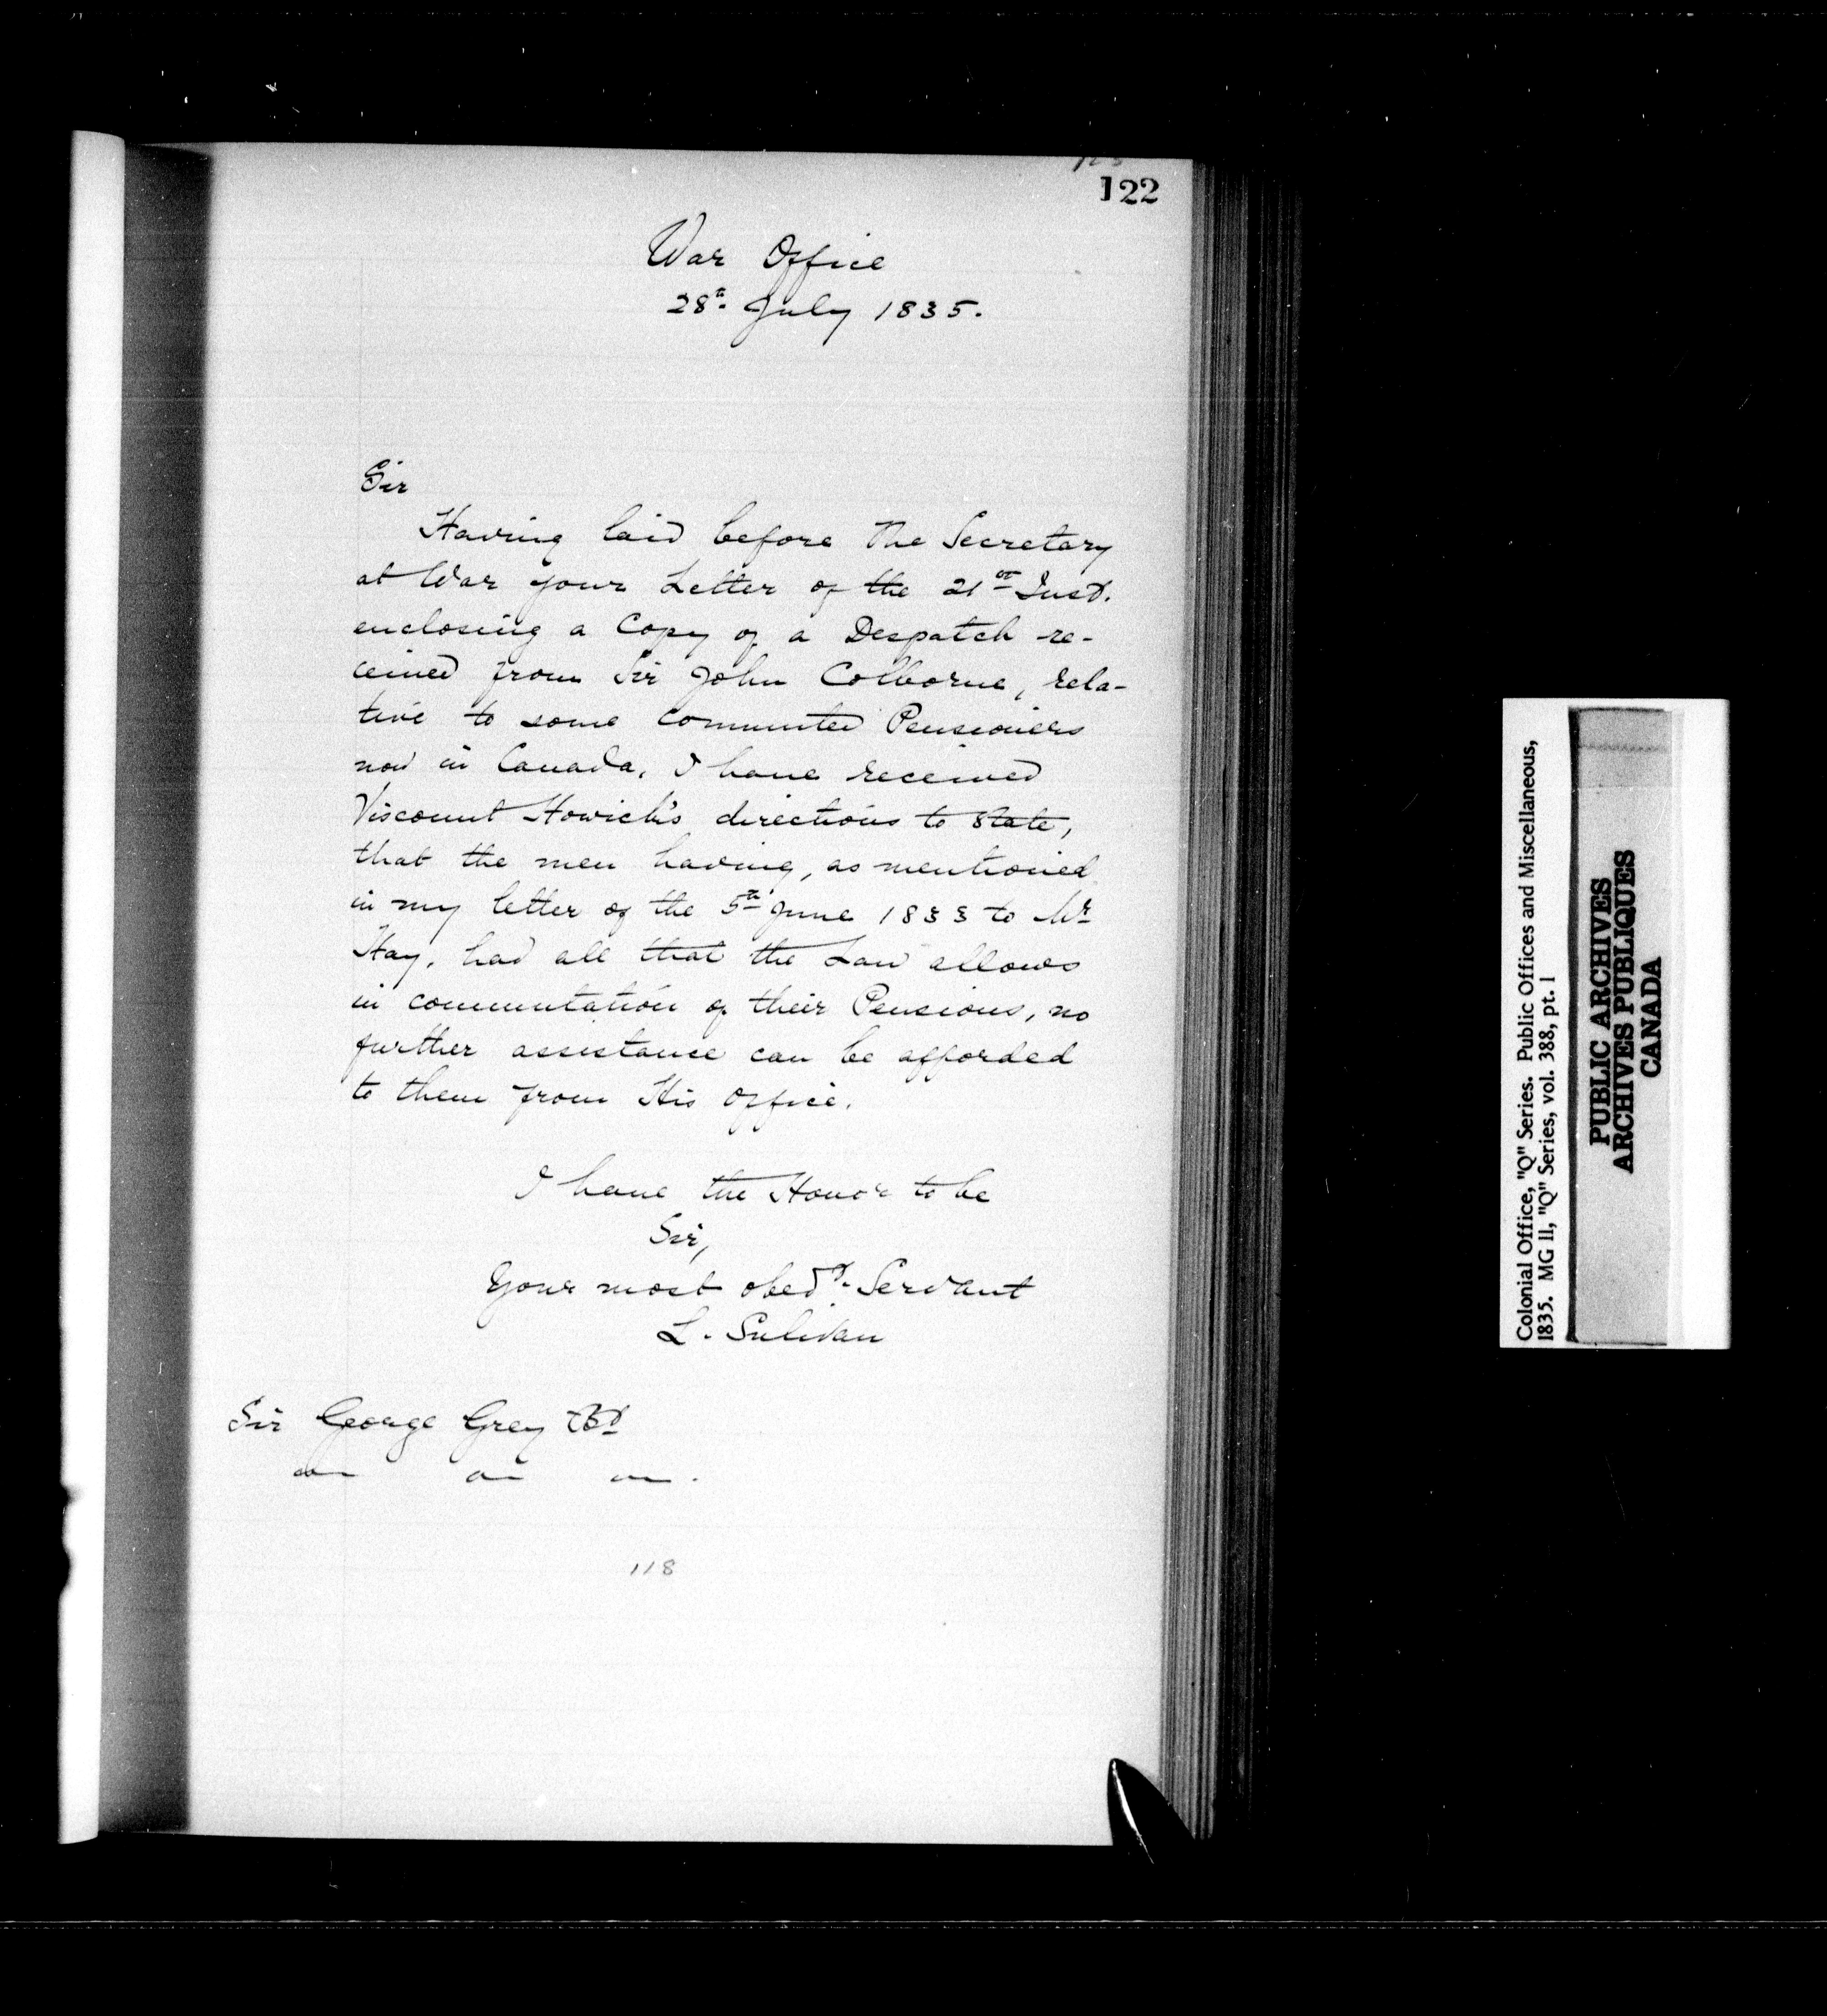 122
War Office
28th July 1835.
Sir
Having laid before The Secretary
at War your Letter of the 21st Inst.
enclosing a Copy of a Despatch re-
ceived from Sir John Colborne, rela-
tive to some commuted Pensioners
now in Canada, I have received
Viscount Howick's directions to state,
that the men having, as mentioned
in my letter of the 5th June 1833 to Mr
Hay, had all that the Law allows
in commutation of their Pensions, no
further assistance can be afforded
to them from this office.
I have the Honor to be
Sir,
Your most obedt. Servant
L. Sulivan
Sir George Grey Bt
118
Colonial Office, "Q" Series. Public Offices and Miscellaneous,
1835. MG 11, "Q" Series, vol. 388, pt. 1
PUBLIC ARCHIVES
ARCHIVES PUBLIQUES
CANADA